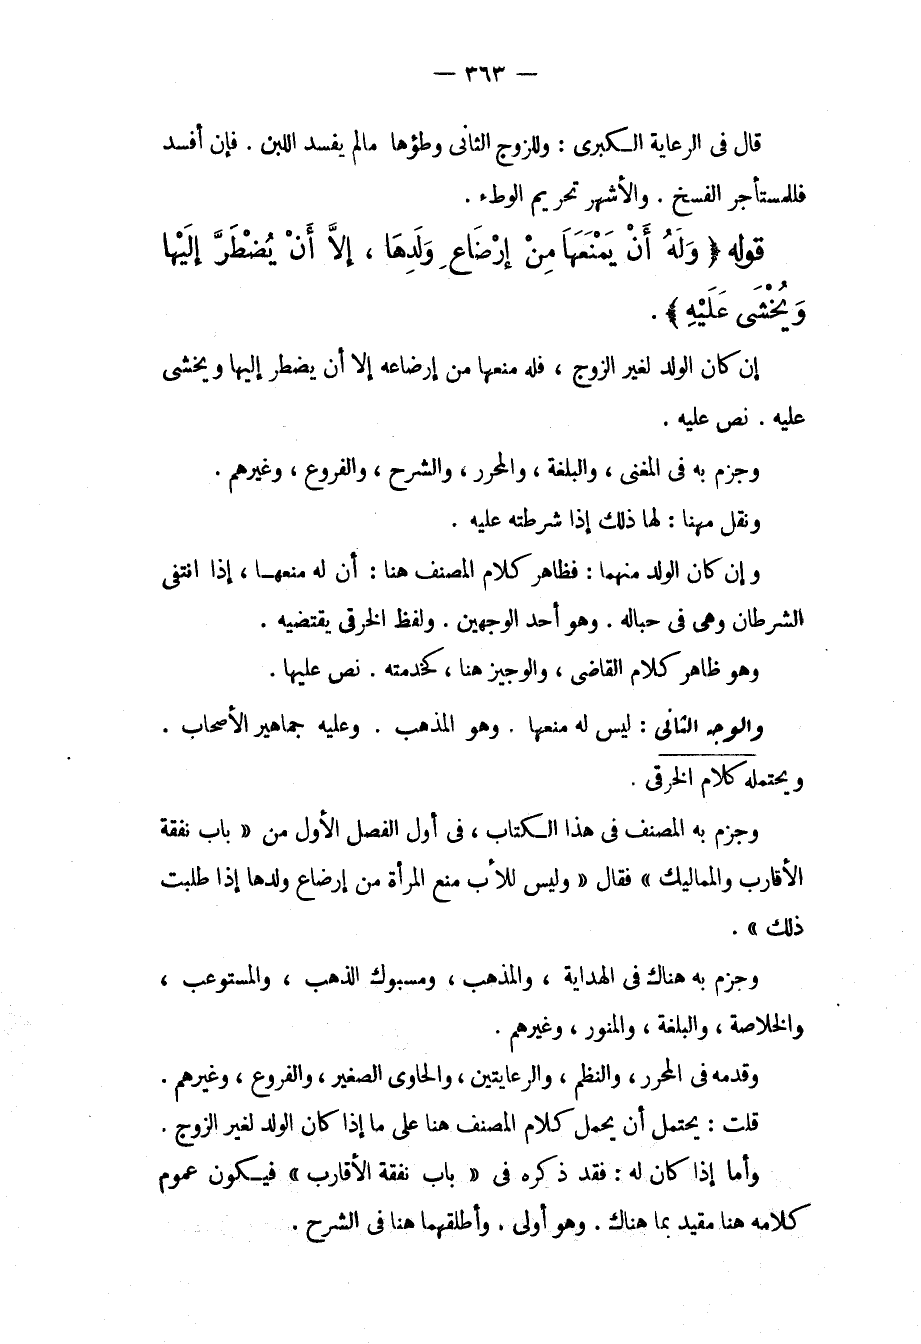 — ٣٦٣ —
قال فى الرعاية الكبرى : وللزوج الثانى وطؤها مالم يفسد اللبن . فإن أفسد
فللمستأجر الفسخ . والأشهر تحريم الوطء .
قوله ﴿ وَلَهُ أَنْ يَمْنَعَهَا مِنْ إِرْضَاعِ وَلَدِهَا ، إِلاَّ أَنْ يُضْطَرَّ إِلَيْهَا
وَيُخْشَى عَلَيْهِ ﴾ .
إن كان الولد لغير الزوج ، فله منعها من إرضاعه إلا أن يضطر إليها ويخشى
عليه . نص عليه .
وجزم به فى المغنى ، والبلغة ، والمحرر ، والشرح ، والفروع ، وغيرهم .
ونقل مهنا : لها ذلك إذا شرطته عليه .
وإن كان الولد منهما : فظاهر كلام المصنف هنا : أن له منعها ، إذا انتفى
الشرطان وهى فى حباله . وهو أحد الوجهين . ولفظ الخرقى يقتضيه .
وهو ظاهر كلام القاضى ، والوجيز هنا ، كخدمته . نص عليها .
والوجه الثانى : ليس له منعها . وهو المذهب . وعليه جماهير الأصحاب .
ويحتمله كلام الخرقى .
وجزم به المصنف فى هذا الكتاب ، فى أول الفصل الأول من « باب نفقة
الأقارب والمماليك » فقال « وليس للأب منع المرأة من إرضاع ولدها إذا طلبت
ذلك » .
وجزم به هناك فى الهداية ، والمذهب ، ومسبوك الذهب ، والمستوعب ،
والخلاصة ، والبلغة ، والمنور ، وغيرهم .
وقدمه فى المحرر ، والنظم ، والرعايتين ، والحاوى الصغير ، والفروع ، وغيرهم .
قلت : يحتمل أن يحمل كلام المصنف هنا على ما إذا كان الولد لغير الزوج .
وأما إذا كان له : فقد ذكره فى « باب نفقة الأقارب » فيكون عموم
كلامه هنا مقيد بما هناك . وهو أولى . وأطلقهما هنا فى الشرح .